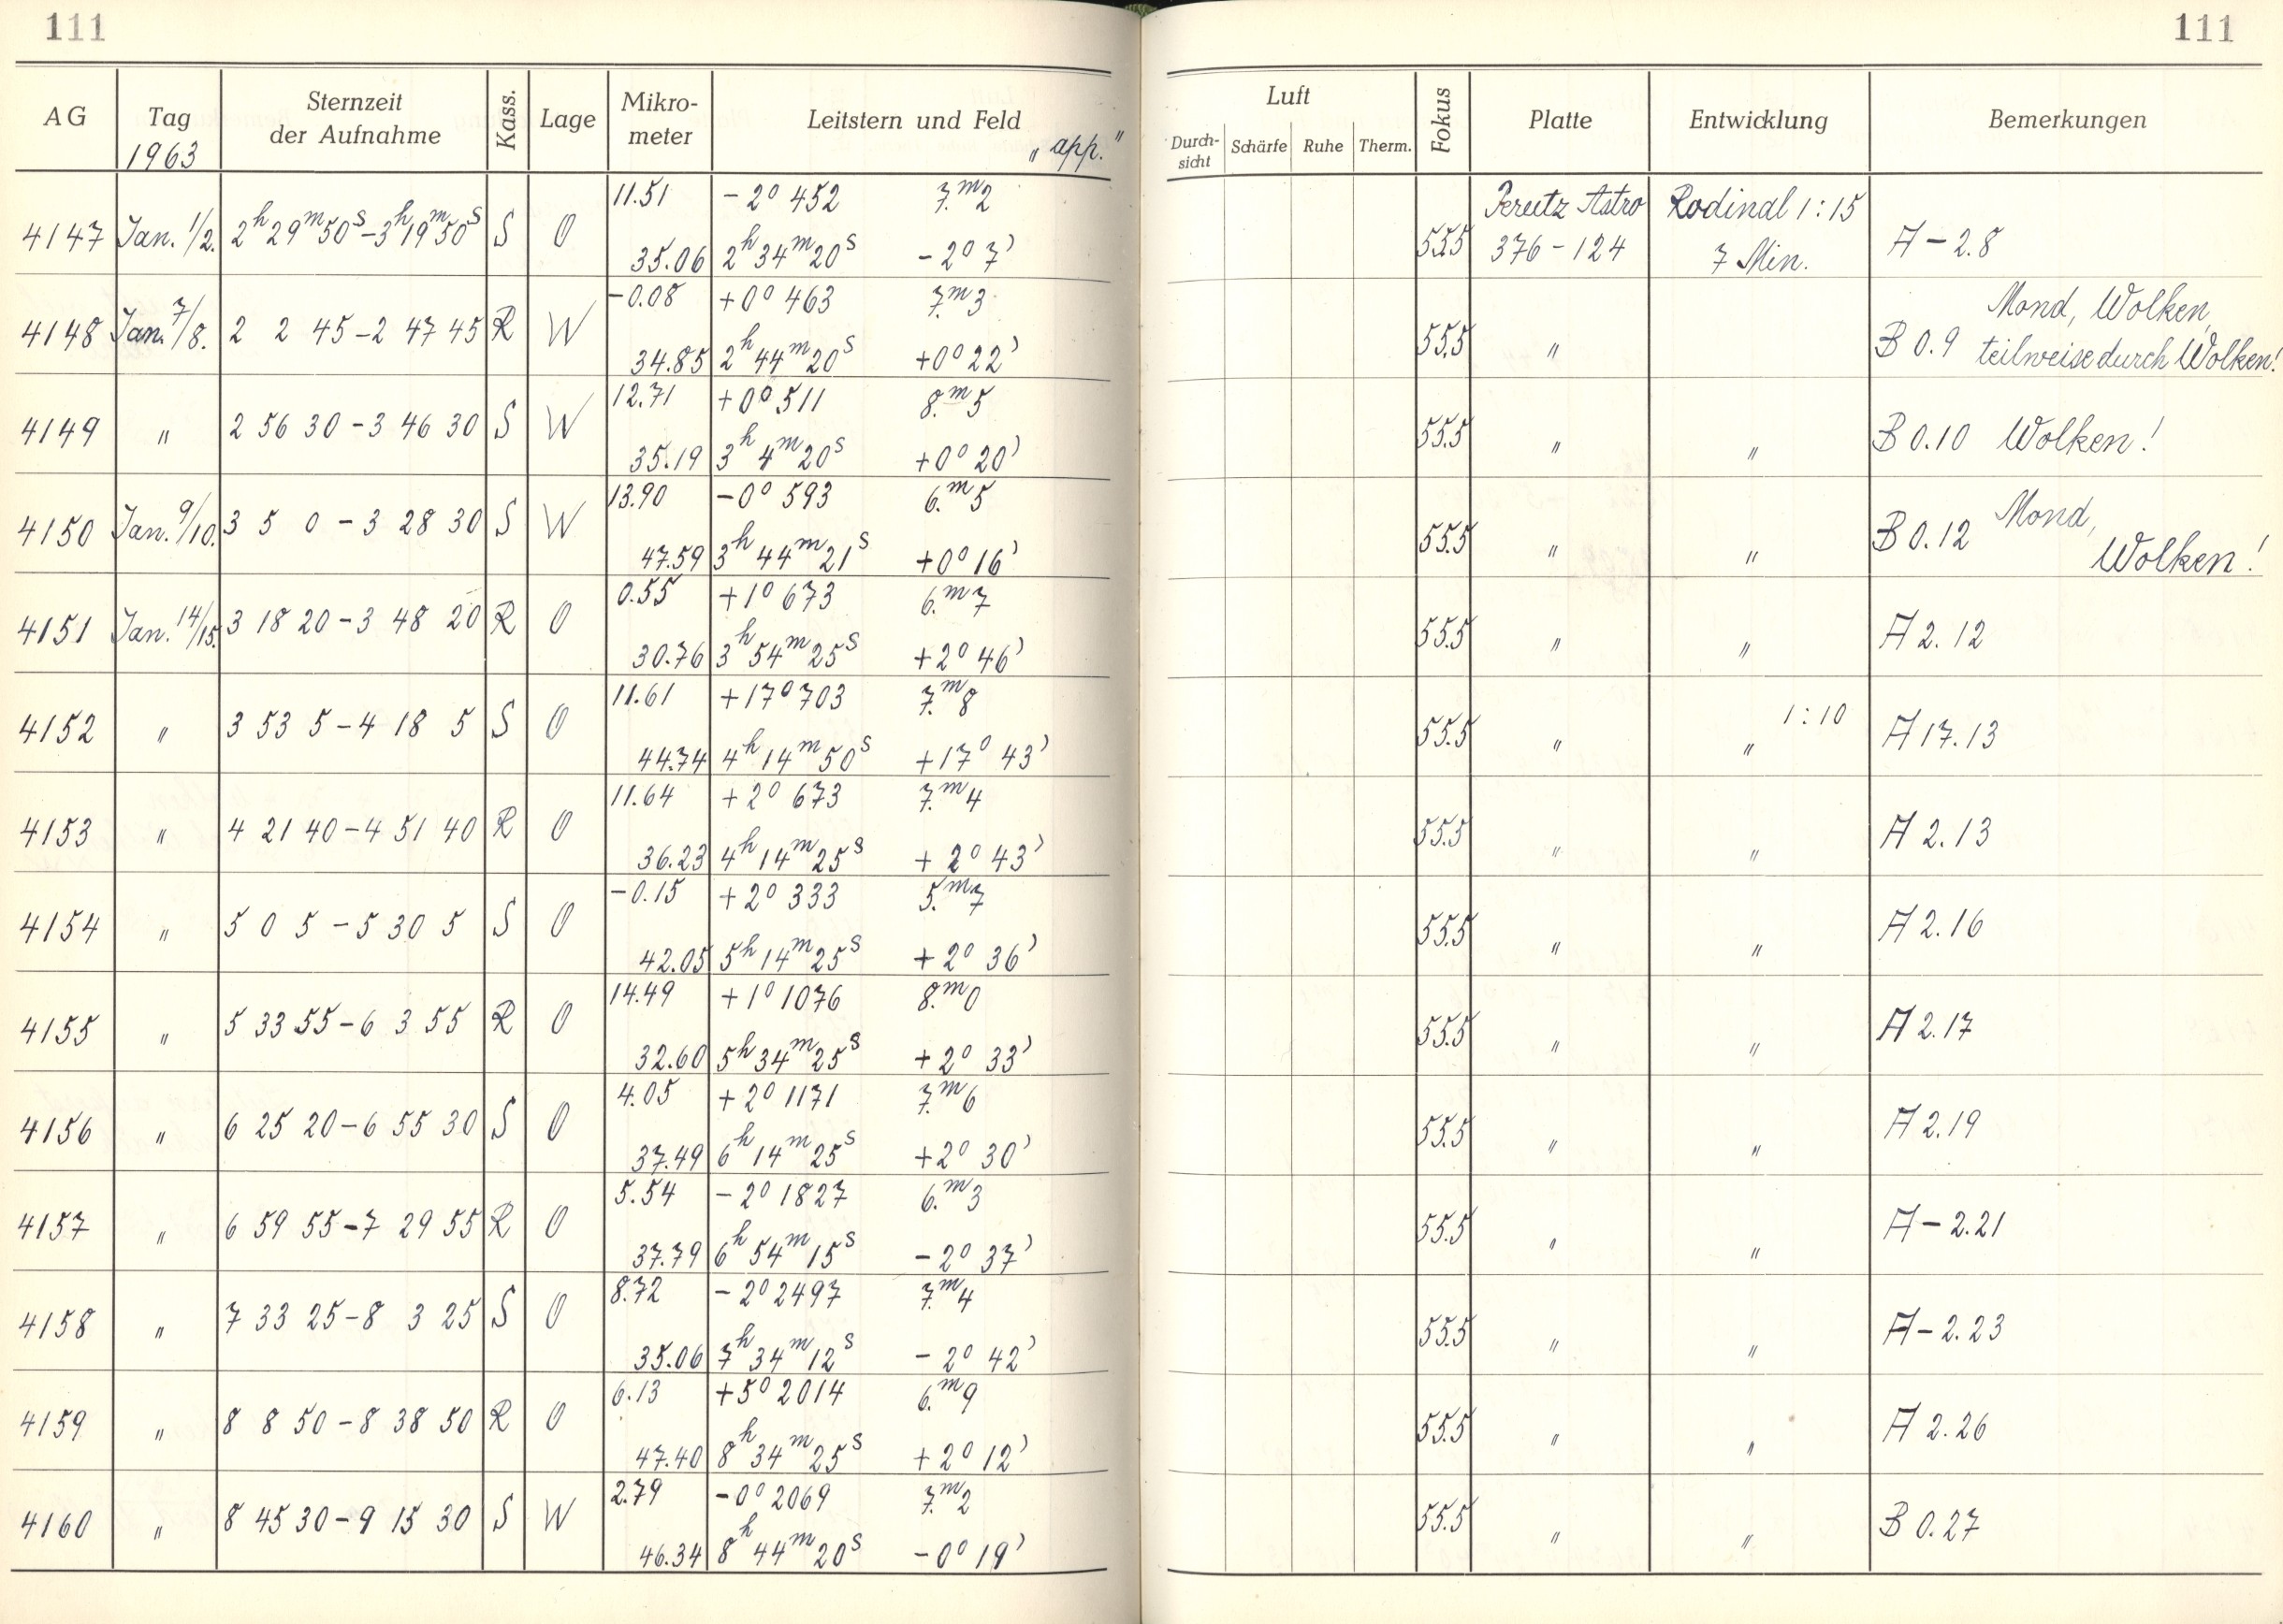 111
111
AG Tag Sternzeit der Aufnahme Kass. Lage Mikro-meter Leitstern und Feld
1963 „app."
Luft
Durch-sicht Schärfe Ruhe Therm. Fokus Platte Entwicklung Bemerkungen
11.51 -2° 452 7.m2 Perutz Astro Rodinal 1:15
4147 Jan. 1/2. 2h 29m 50s-3h 19m 50s S O 555 A -2.8
35.06 2h 34m 20s -2° 7' 376-124 7 Min.
-0.08 +0° 463 7.m3 Mond, Wolken,
4148 Jan. 7/8. 2 2 45-2 47 45 R W 555 " B 0.9 teilweise durch Wolken!
34.85 2h 44m 20s +0° 22'
12.71 +0° 511 8.m5
4149 " 2 56 30-3 46 30 S W 555 " " B 0.10 Wolken!
35.19 3h 4m 20s +0° 20'
13.90 -0° 593 6.m5 Mond,
4150 Jan. 9/10. 3 5 0-3 28 30 S W 555 " " B 0.12 Wolken!
47.59 3h 44m 21s +0° 16'
0.55 +1° 673 6.m7
4151 Jan. 14/15. 3 18 20-3 48 20 R O 555 " " A 2.12
30.76 3h 54m 25s +2° 46'
11.61 +17° 703 7.m8
4152 " 3 53 5-4 18 5 S O 555 " " 1:10 A 17.13
44.74 4h 14m 50s +17° 43'
11.64 +2° 673 7.m4
4153 " 4 21 40-4 51 40 R O 555 " " A 2.13
36.23 4h 14m 25s +2° 43'
-0.15 +2° 333 5.m7
4154 " 5 0 5-5 30 5 S O 555 " " A 2.16
42.05 5h 14m 25s +2° 36'
14.49 +1° 1076 8.m0
4155 " 5 33 55-6 3 55 R O 555 " " A 2.17
32.60 5h 34m 25s +2° 33'
4.05 +2° 1171 7.m6
4156 " 6 25 20-6 55 30 S O 555 " " A 2.19
37.49 6h 14m 25s +2° 30'
5.54 -2° 1827 6.m3
4157 " 6 59 55-7 29 55 R O 555 " " A -2.21
37.79 6h 54m 15s -2° 37'
8.72 -2° 2497 7.m4
4158 " 7 33 25-8 3 25 S O 555 " " A -2.23
35.06 7h 34m 12s -2° 42'
6.13 +5° 2014 6.m9
4159 " 8 8 50-8 38 50 R O 555 " " A 2.26
47.40 8h 34m 25s +2° 12'
2.79 -0° 2069 7.m2
4160 " 8 45 30-9 15 30 S W 555 " " B 0.27
46.34 8h 44m 20s -0° 19'